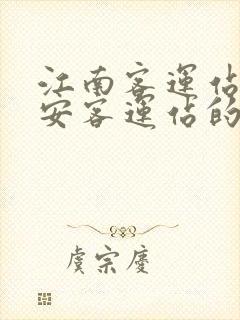 江南客運佔
安客運佔的
虞宗慶